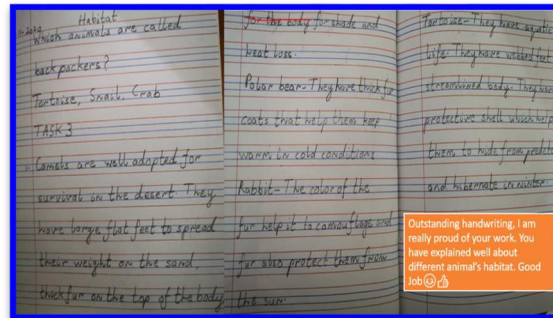 Habitat
Which animals are called
back packers?
Tortoise, Snail, Crab
TASK 3
Camels are well adapted for
survival in the desert. They
have large flat feet to spread
their weight on the sand,
thick fur on the top of the body
for the body for shade and
heat loss.
Polar bear - They have thick fur
coats that help them keep
warm in cold conditions
Rabbit - The color of the
fur help it to camouflage and
fur also protect them from
the sun.
Tortoise - They have aquatic
life. They have webbed feet
streamlined body. They have
protective shell which help
them to hide from
and hibernate in winter
Outstanding handwriting, I am
really proud of your work. You
have explained well about
different animal's habitat. Good
Job